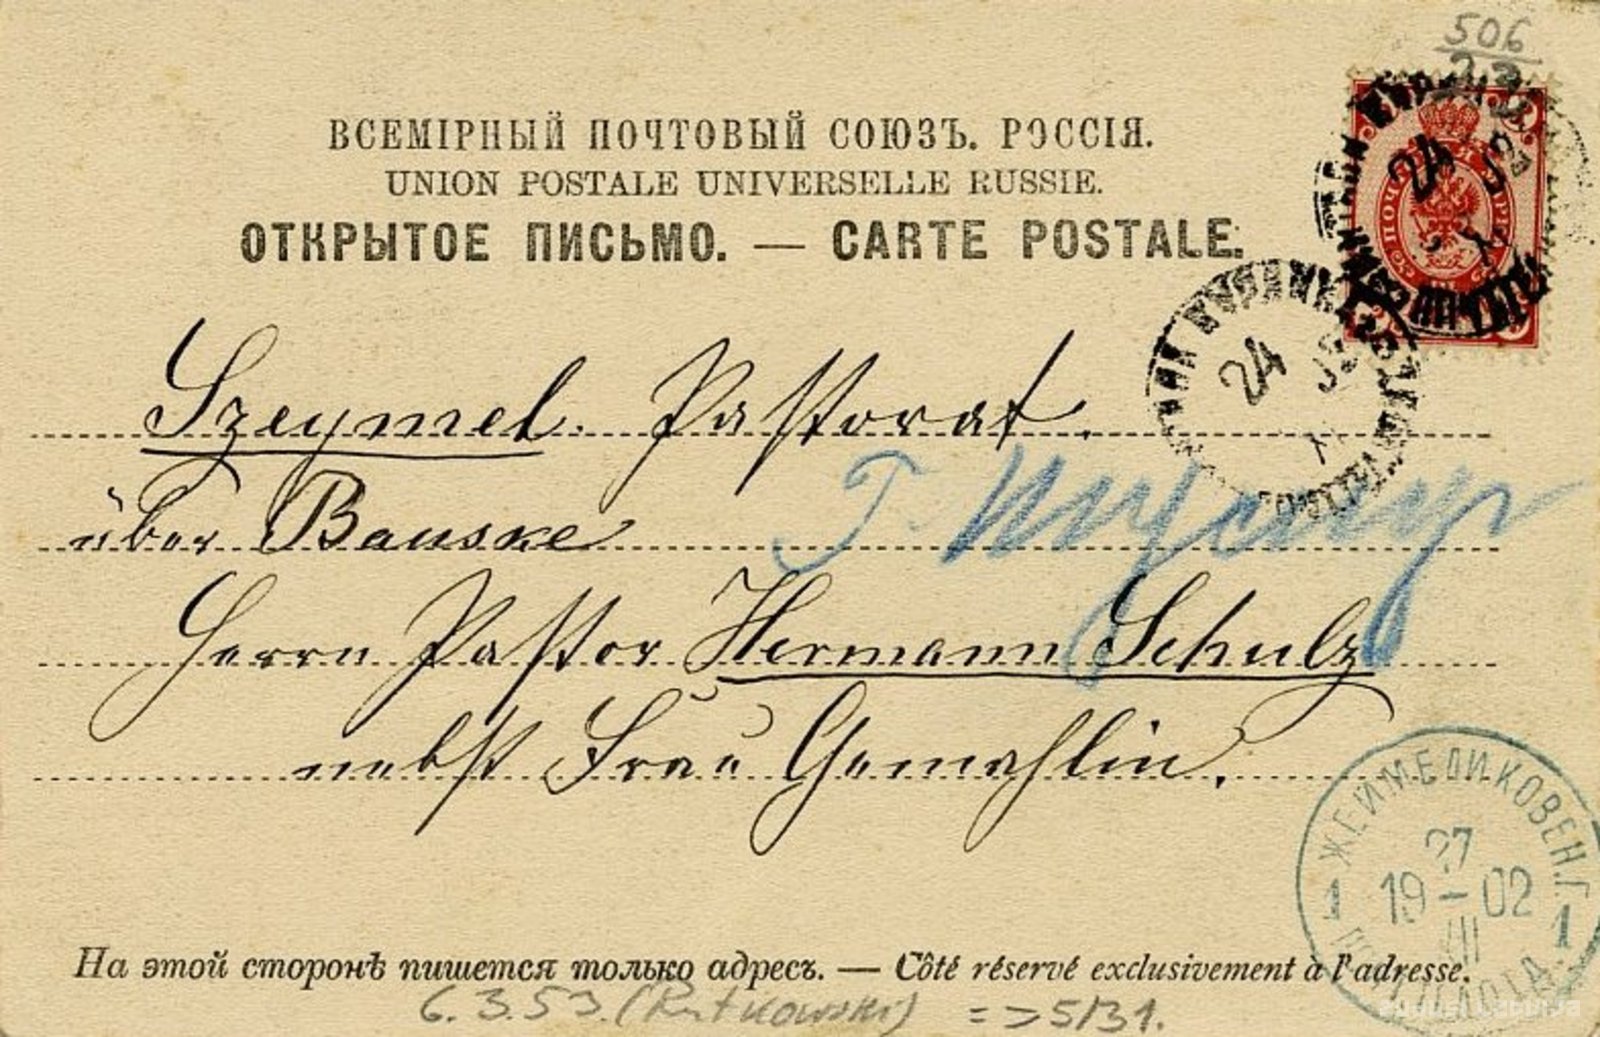 506
ВСЕМІРНЫЙ ПОЧТОВЫЙ СОЮЗЪ. РОССІЯ.
UNION POSTALE UNIVERSELLE RUSSIE.
ОТКРЫТОЕ ПИСЬМО. — CARTE POSTALE.
24
24
Szeymel. Pastorat.
über Bauske
Herrn Pastor Hermann Schulz
nebst Frau Gemahlin.
ЖЕЙМЕЛИКОВЕН.Г.
27
1 19-02 1
На этой сторонѣ пишется только адресъ. — Côté réservé exclusivement à l'adresse.
6.3.53. (Rutkowski) => 5131.